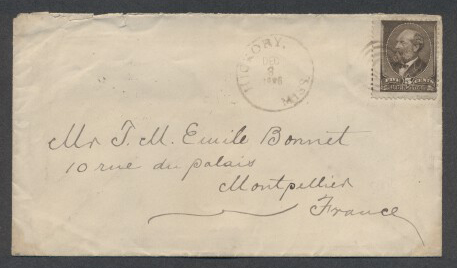 HICKORY,
DEC
MISS
FIVE 5 CENTS
Mr T. M. Emile Bonnet
10 rue du palais
Montpellier
France